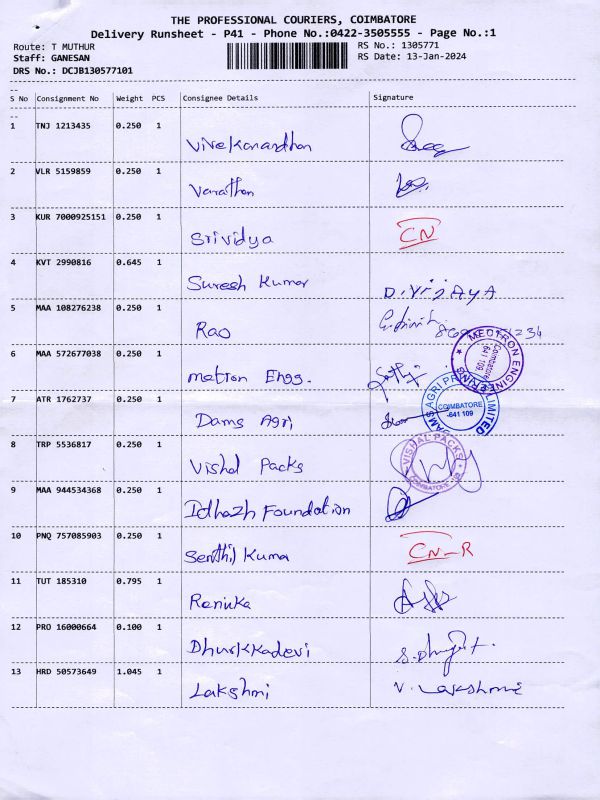 THE PROFESSIONAL COURIERS, COIMBATORE
Delivery Runsheet - P41 - Phone No.:0422-3505555 - Page No.:1
Route: T MUTHUR RS No.: 1305771
Staff: GANESAN RS Date: 13-Jan-2024
DRS No.: DCJB130577101
S No Consignment No Weight PCS Consignee Details Signature
1 TNJ 1213435 0.250 1 Vivekanandhan
2 VLR 5159859 0.250 1 Varathan
3 KUR 7000925151 0.250 1 Srividya CN
4 KVT 2990816 0.645 1 Suresh Kumar D.VIJAYA
5 MAA 108276238 0.250 1 Rao
6 MAA 572677038 0.250 1 metron Engg.
MECTRON ENGINEERING
Coimbatore
641 109.
7 ATR 1762737 0.250 1 Dams Agri
AGRI PRIVATE LIMITED
COIMBATORE
-641 109
8 TRP 5536817 0.250 1 Vishal Packs
VISHAL PACKS
COIMBATORE
9 MAA 944534368 0.250 1 Idhazh Foundation
10 PNQ 757085903 0.250 1 Senthil Kuma CN-R
11 TUT 185310 0.795 1 Renuka
12 PRO 16000664 0.100 1 Dhurkkadevi
13 HRD 50573649 1.045 1 Lakshmi V. Lakshmi